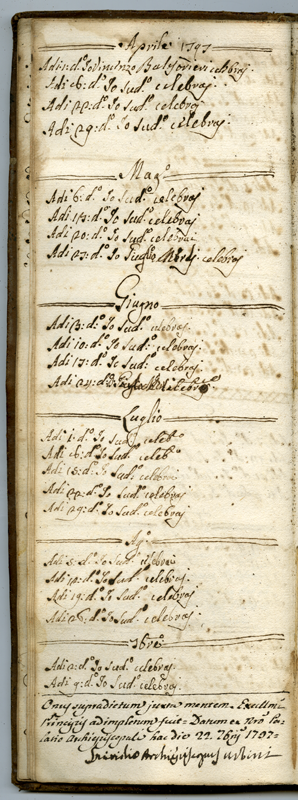 Aprile 1797
Adi d.º Io Vincenzo celebrai
Adi 16: d.º Io Sud.º celebrai
Adi 22: d.º Io Sud.º celebraj
Adi 29: d.º Io Sud.º celebraj
Mag.º
Adi 6: d.º Io Sud.º celebraj
Adi 14: d.º Io Sud.º celebraj
Adi 20: d.º Io Sud.º celebrai
Adi 27: d.º Io celebraj
Giugno
Adi 3: d.º Io Sud.º celebraj
Adi 10: d.º Io Sud.º celebraj
Adi 17: d.º Io Sud.º celebraj
Adi 24: d.º Io celebraj
Luglio
Adi 1: d.º Io Sud.º celeb.º
Adi 6: d.º Io Sud.º celeb.º
Adi 15: d.º Io Sud.º celebrai
Adi 22: d.º Io Sud.º celebraj
Adi 29: d.º Io Sud.º celebraj
Ag.º
Adi 5: d.º Io Sud.º celebrai
Adi 12: d.º Io Sud.º celebraj
Adi 19: d.º Io Sud.º celebraj
Adi 26: d.º Io Sud.º celebraj
7bre
Adi 2: d.º Io Sud.º celebraj
Adi 9: d.º Io Sud.º celebraj
Onus supradictum juxta mentem Exc̃llmi
Principis adimpletum fuit = Datum ex Nrō Pa-
latio Archiepiscopali hac die 22 7bris 1797 =
Archiepiscopus Urbini